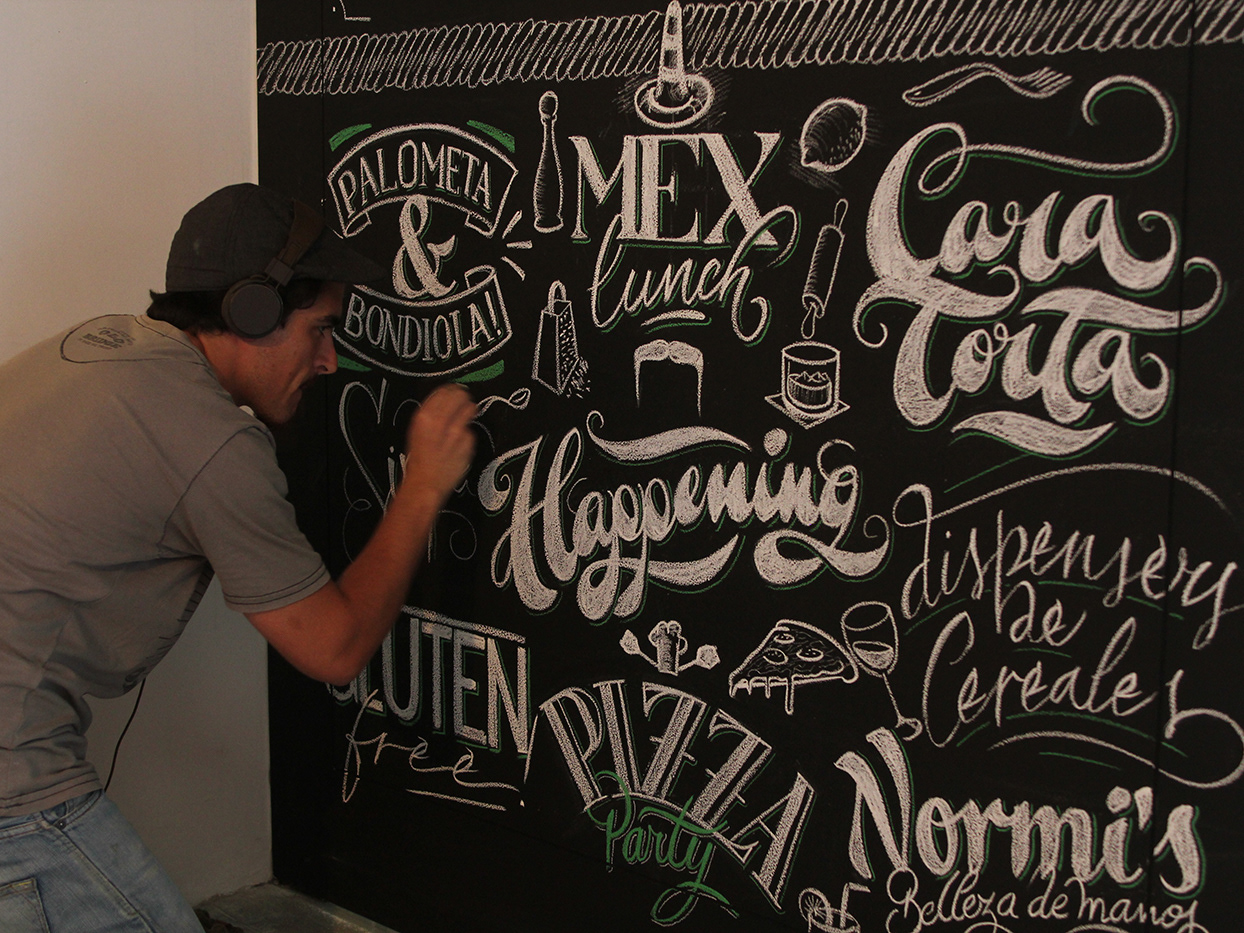 PALOMETA
&
BONDIOLA!
MEX
lunch
Cara
Torta
Happening
dispensers
De
Cereales
GLUTEN
free
PIZZA
Party
Normi's
Belleza de manos